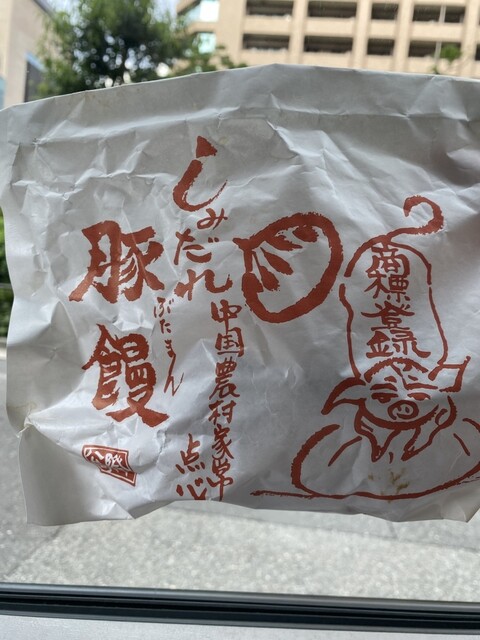 商標登録
しみだれ
中国農村家常
点心
ぶたまん
豚饅